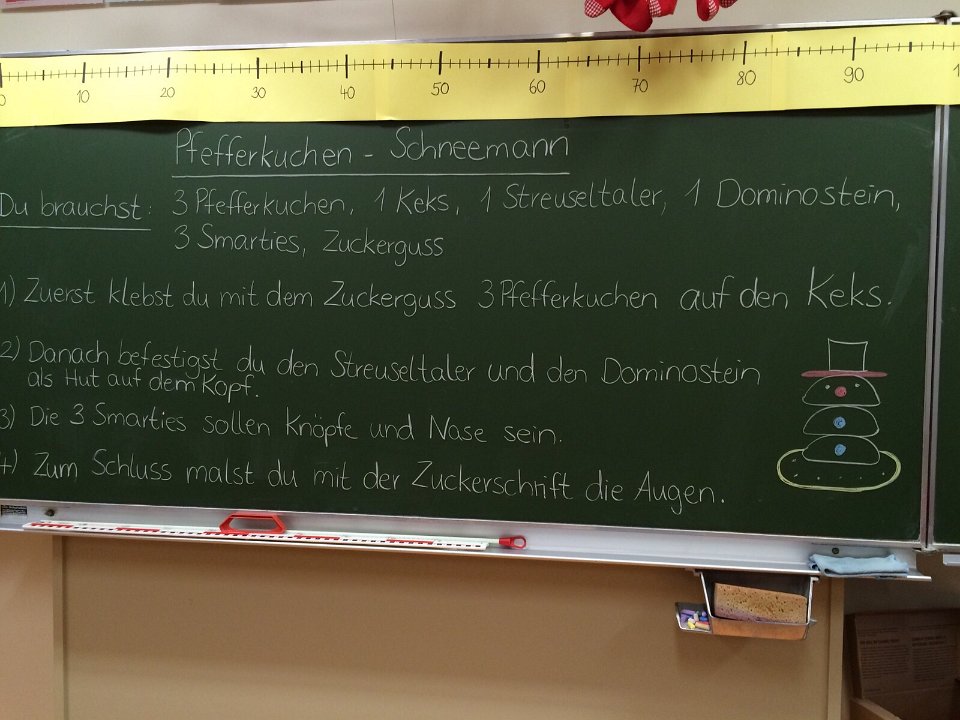 0 10 20 30 40 50 60 70 80 90 1
Pfefferkuchen - Schneemann
Du brauchst: 3 Pfefferkuchen, 1 Keks, 1 Streuseltaler, 1 Dominostein,
3 Smarties, Zuckerguss
1) Zuerst klebst du mit dem Zuckerguss 3 Pfefferkuchen auf den Keks.
2) Danach befestigst du den Streuseltaler und den Dominostein
als Hut auf dem Kopf.
3) Die 3 Smarties sollen Knöpfe und Nase sein.
4) Zum Schluss malst du mit der Zuckerschrift die Augen.